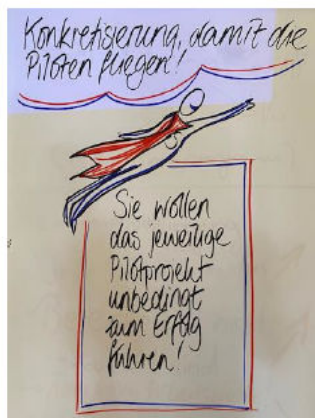 Konkretisierung, damit die
Piloten fliegen!
Sie wollen
das jeweilige
Pilotprojekt
unbedingt
zum Erfolg
führen!